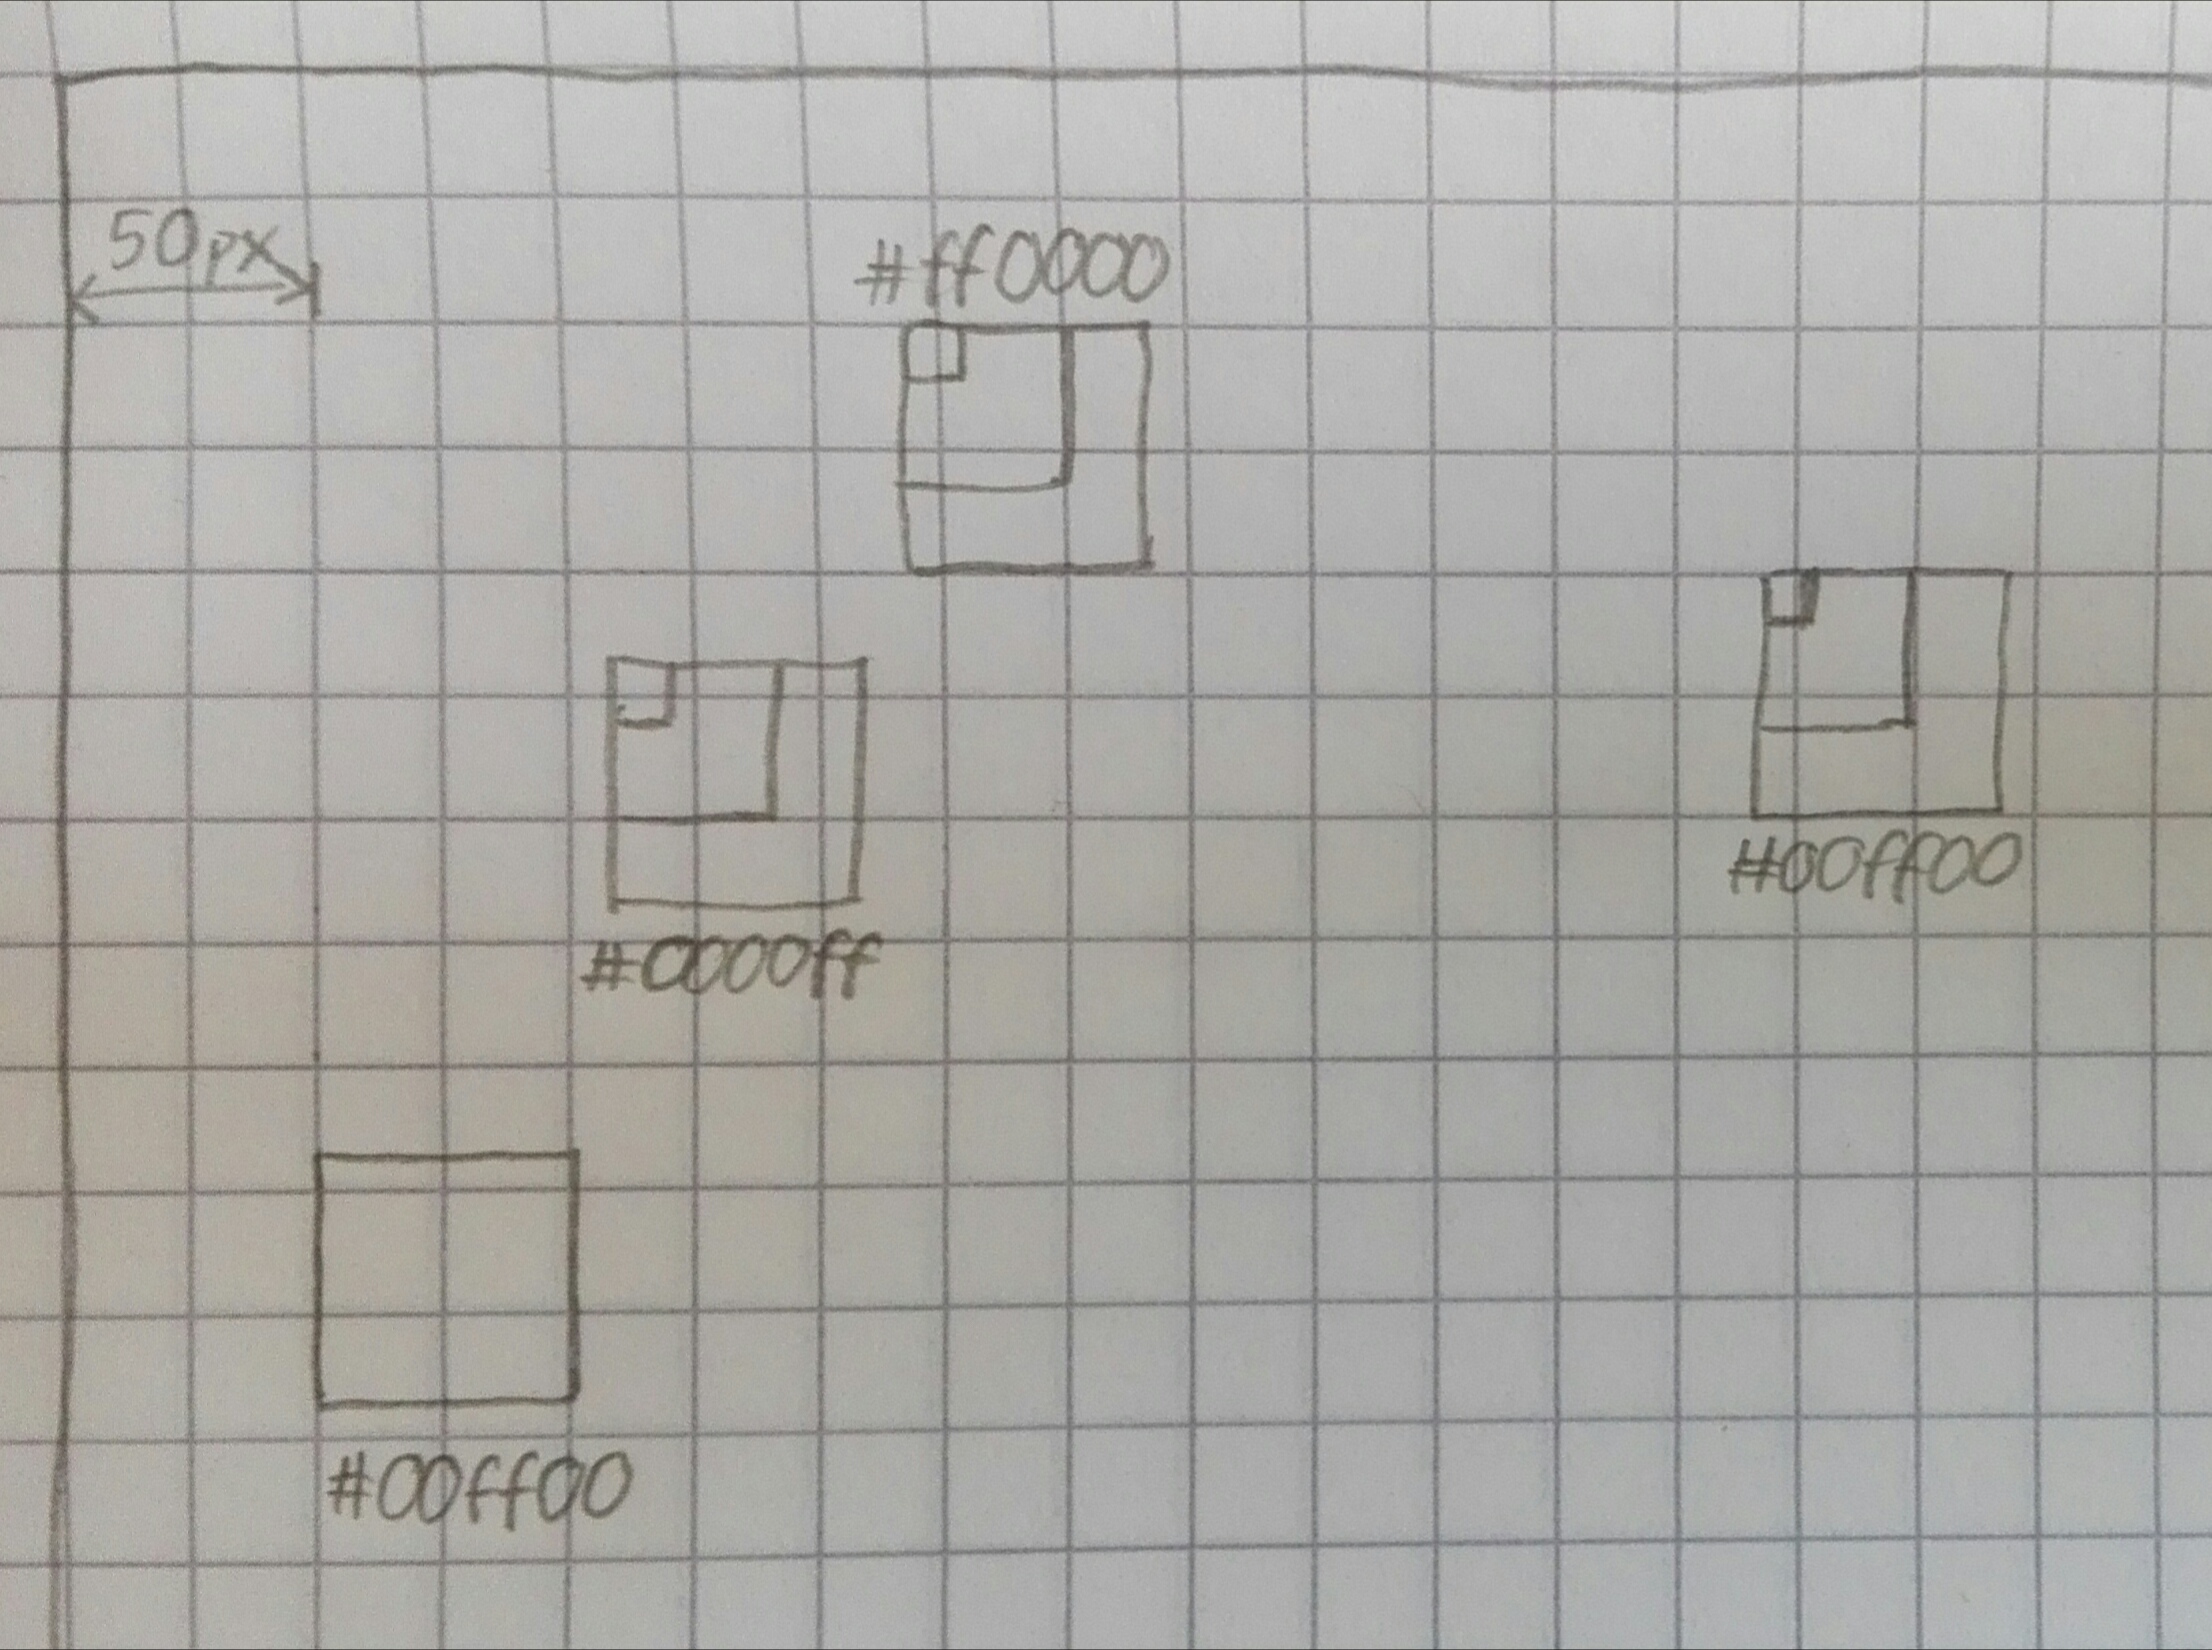 50px
#ff0000
#00ff00
#0000ff
#00ff00